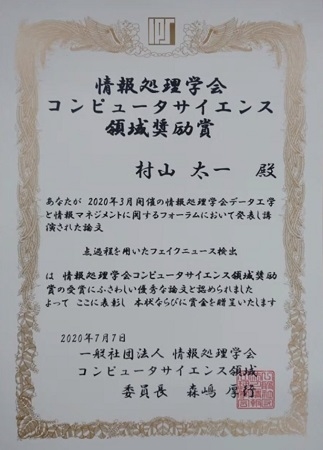 IPS
情報処理学会
コンピュータサイエンス
領域奨励賞
村山 太一 殿
あなたが 2020年3月開催の情報処理学会データ工学
と情報マネジメントに関するフォーラムにおいて発表し講
演された論文
点過程を用いたフェイクニュース検出
は 情報処理学会コンピュータサイエンス領域奨励
賞の受賞にふさわしい優秀な論文と認められました
よって ここに表彰し 本状ならびに賞金を贈呈いたします
2020年7月7日
一般社団法人 情報処理学会
コンピュータサイエンス領域
委員長 森嶋 厚行